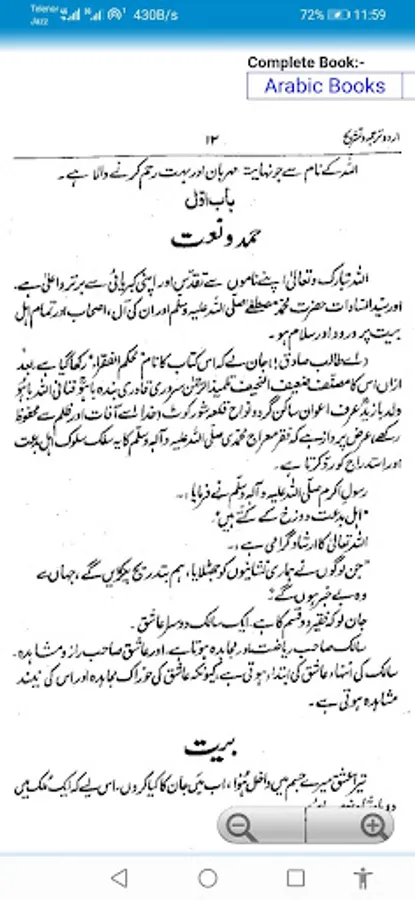 Telenor
Jazz
430B/s
72%
11:59
Complete Book:-
Arabic Books
اردو ترجمہ و تشریح
۱۳
اللہ کے نام سے جو نہایت مہربان اور بہت رحم کرنے والا ہے۔
باب اوّل
حمد و نعت
اللہ تبارک و تعالیٰ اپنے ناموں سے تقدّس اور اپنی کبریائی سے برتر و اعلیٰ ہے۔
اور سید السادات حضرت محمد مصطفےٰ صلی اللہ علیہ وسلم اور ان کی آل، اصحاب اور تمام اہل
بیت پر درود اور سلام ہو۔
دلے طالب صادق!) جان لے کہ اس کتاب کا نام محکم الفقراء رکھا گیا ہے۔ بعد
ازاں اس کا مصنّف ضعیف النحیف تلمیذ الرحمٰن سروری قادری بندہ باہُو فنا فی اللہ باہُو
ولد بازیدؒ عرف اعوان ساکن گرد و نواح قلعہ شور کوٹ (خدا اسے آفات اور ظلم سے محفوظ
رکھے) عرض پرداز ہے کہ فقر معراج محمدی صلی اللہ علیہ وآلہ وسلم کا یہ سلک سلوک اہل بدعت
اور استدراج کو رد کرتا ہے۔
رسول اکرم صلی اللہ علیہ وآلہ وسلم نے فرمایا :۔
"اہل بدعت دوزخ کے کتے ہیں"۔
اللہ تعالیٰ کا ارشاد گرامی ہے :۔
"جن لوگوں نے ہماری نشانیوں کو جھٹلایا، ہم بتدریج پکڑیں گے، جہاں سے
وہ بے خبر ہوں گے"۔
جان لو کہ فقیر دو قسم کا ہے۔ ایک سالک دوسرا عاشق۔
سالک صاحب ریاضت اور مجاہدہ ہوتا ہے، اور عاشق صاحب راز و مشاہدہ۔
سالک کی انتہاء عاشق کی ابتداء ہوتی ہے، کیونکہ عاشق کی خوراک مجاہدہ اور اس کی نیند
مشاہدہ ہوتی ہے۔
بیت
تیرا عشق میرے جسم میں داخل ہُوا، اب میں جان کا کیا کروں۔ اس لیے کہ ایک ملک میں